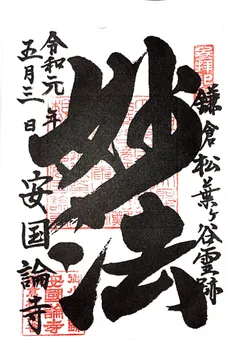 鎌倉松葉ヶ谷霊跡
妙法
令和元年
五月三日
安国論寺